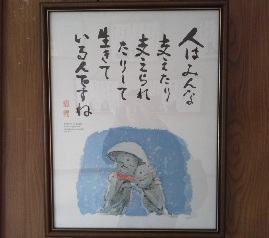 人はみんな
支えたり
支えられ
たりして
生きて
いるんですね